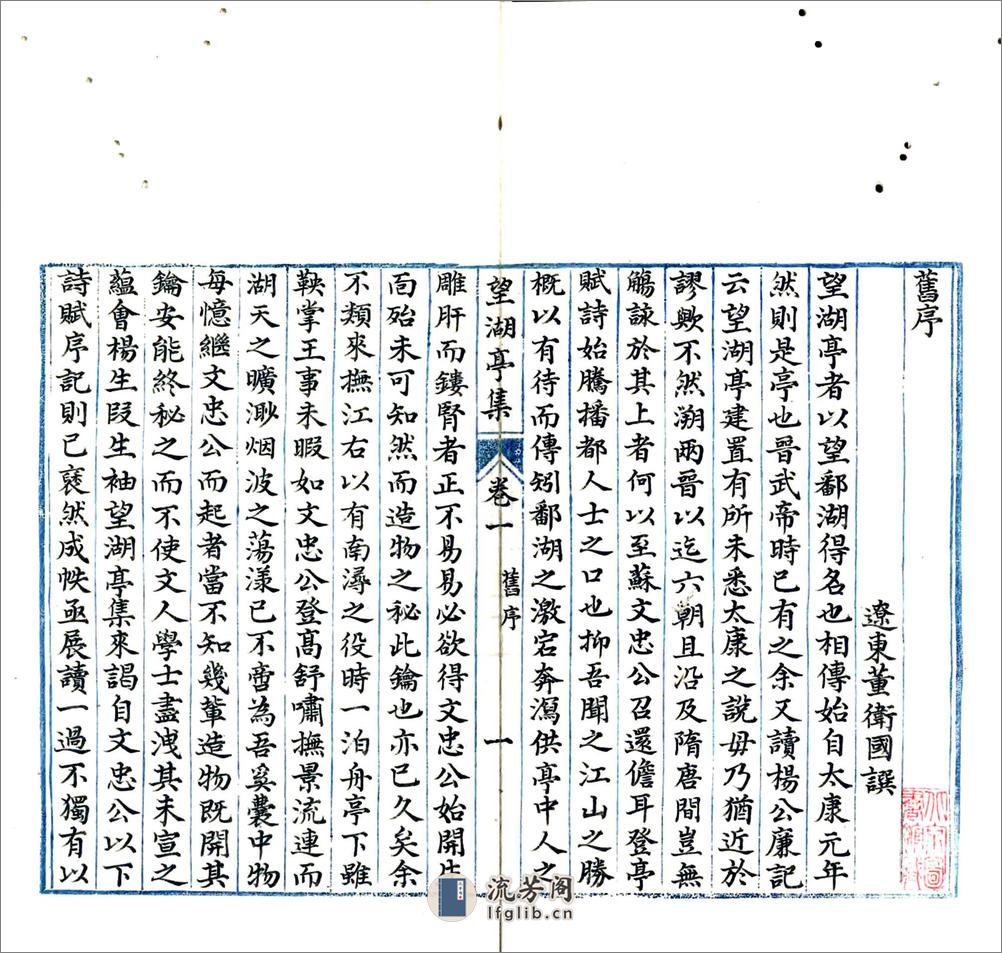 舊序
遼東董衛國譔
望湖亭者以望鄱湖得名也相傳始自太康元年
然則是亭也晉武帝時已有之余又讀楊公廉記
云望湖亭建置有所未悉太康之說毋乃猶近於
謬歟不然溯兩晉以迄六朝且沿及隋唐間豈無
觴詠於其上者何以至蘇文忠公召還儋耳登亭
賦詩始騰播都人士之口也抑吾聞之江山之勝
概以有待而傳矧鄱湖之激宕奔瀉供亭中人之
望湖亭集
卷一
舊序
一
雕肝而鏤腎者正不易易必欲得文忠公始開生
面殆未可知然而造物之秘此鑰也亦已久矣余
不類來撫江右以有南潯之役時一泊舟亭下雖
鞅掌王事未暇如文忠公登高舒嘯撫景流連而
湖天之曠渺烟波之蕩漾已不啻為吾奚囊中物
每憶繼文忠公而起者當不知幾輩造物既開其
鑰安能終秘之而不使文人學士盡洩其未宣之
蘊會楊生段生袖望湖亭集來謁自文忠公以下
詩賦序記則已裒然成帙亟展讀一過不獨有以
流芳阁
lfglib.cn